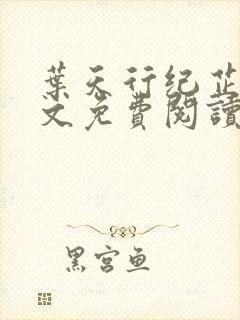 葉天行纪芷
文免費閱讀
黑宫鱼